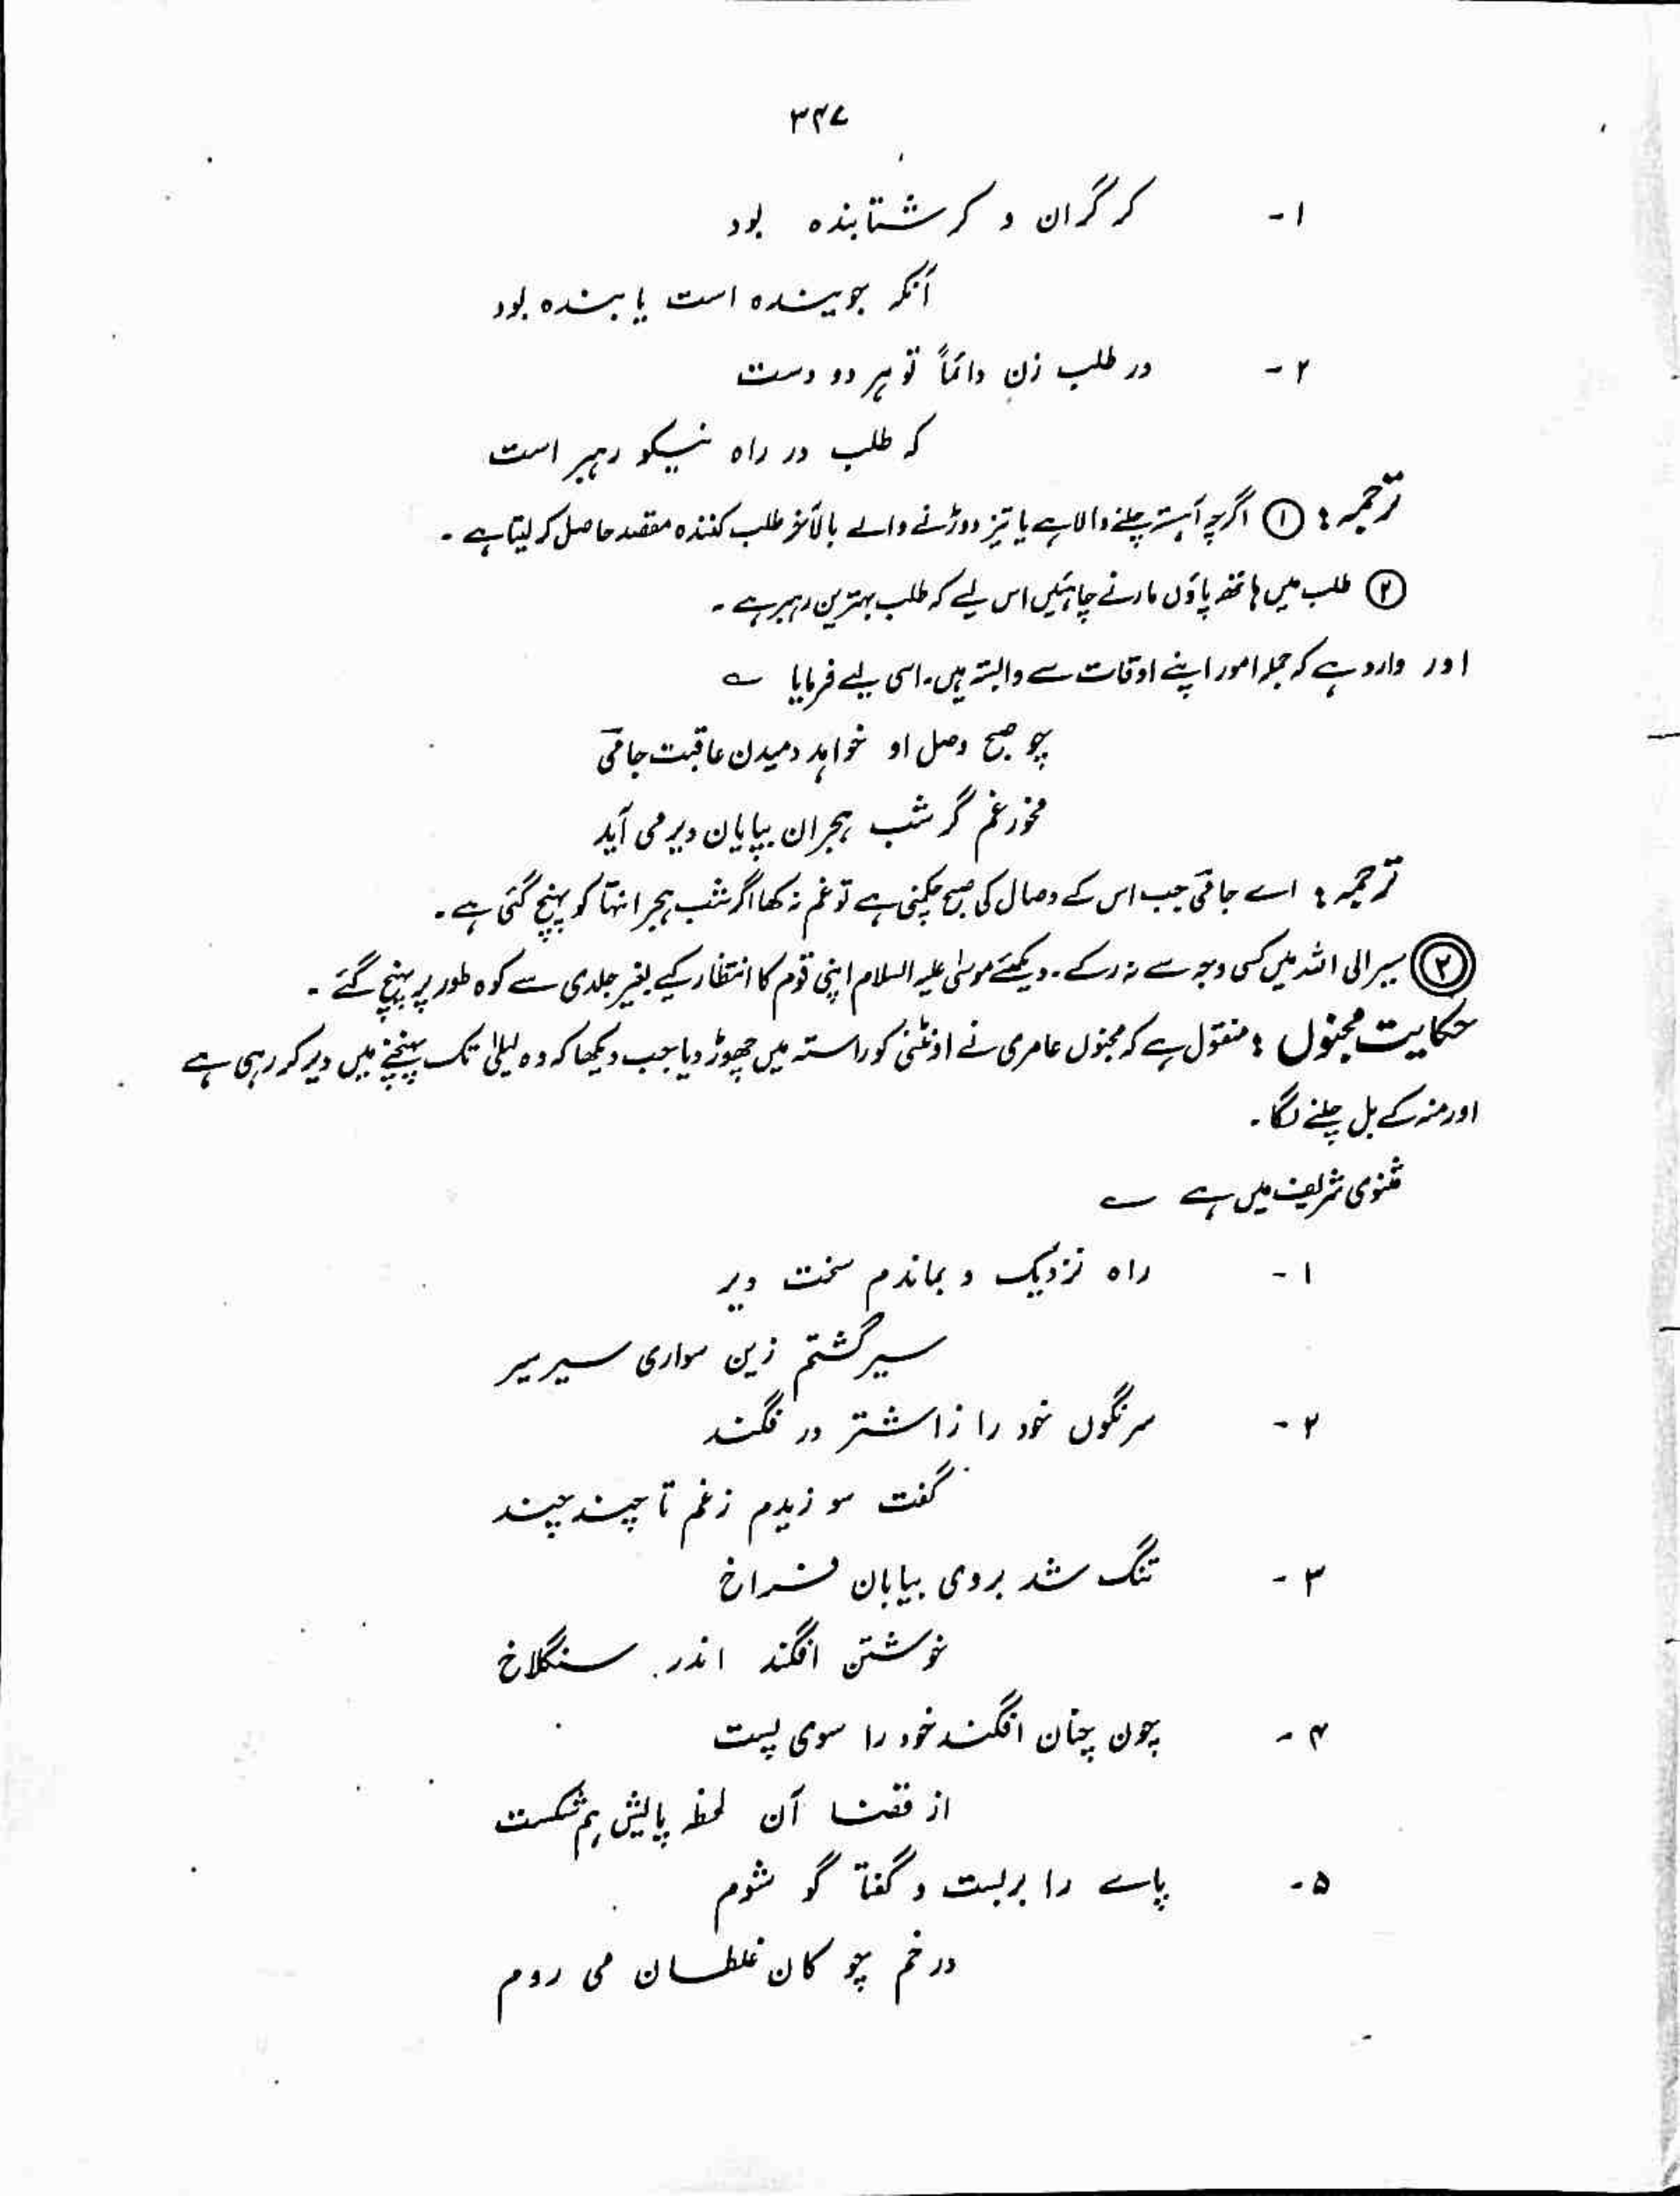 ۳۴۷
۱- کر گران و کر شتابنده بود
آنکہ جویندہ است یابندہ بود
۲- در طلب زن دائماً تو ہر دو دست
کہ طلب در راہ نیکو رہبر است
ترجمہ: ① اگرچہ آہستہ چلنے والا ہے یا تیز دوڑنے والے بالآخر طلب کنندہ مقصد حاصل کر لیتا ہے۔
② طلب میں ہاتھ پاؤں مارنے چاہئیں اس لیے کہ طلب بہترین رہبر ہے۔
اور وارد ہے کہ جملہ امور اپنے اوقات سے وابستہ ہیں۔ اسی لیے فرمایا ؎
چو صبح وصل او خواہد دمیدن عاقبت جامی
مخور غم گر شب ہجران بپایان دیر می آید
ترجمہ: اے جامی جب اس کے وصال کی صبح چمکنی ہے تو غم نہ کھا اگر شب ہجر انتہا کو پہنچ گئی ہے۔
③ سیر الی اللہ میں کسی وجہ سے نہ رکے۔ دیکھئے موسیٰ علیہ السلام اپنی قوم کا انتظار کیے بغیر جلدی سے کوہ طور پر پہنچ گئے۔
حکایت مجنوں: منقول ہے کہ مجنوں عامری نے اونٹنی کو راستہ میں چھوڑ دیا جب دیکھا کہ وہ لیلیٰ تک پہنچنے میں دیر کر رہی ہے
اور منہ کے بل چلنے لگا۔
مثنوی شریف میں ہے ؎
۱- راہ نزدیک و بماندم سخت دیر
سیر گشتم زین سواری سیر سیر
۲- سرنگوں خود را ز اشتر در فگند
گفت سوزیدم زغم تا چند چند
۳- تنگ شد بروی بیابان فراخ
خوشتن افگند اندر سنگلاخ
۴- چون چنان افگند خود را سوی پست
از قضا آن لحظہ پایش ہم شکست
۵- پاے را بربست و گفتا گو شوم
در خم چو کان غلطان می روم